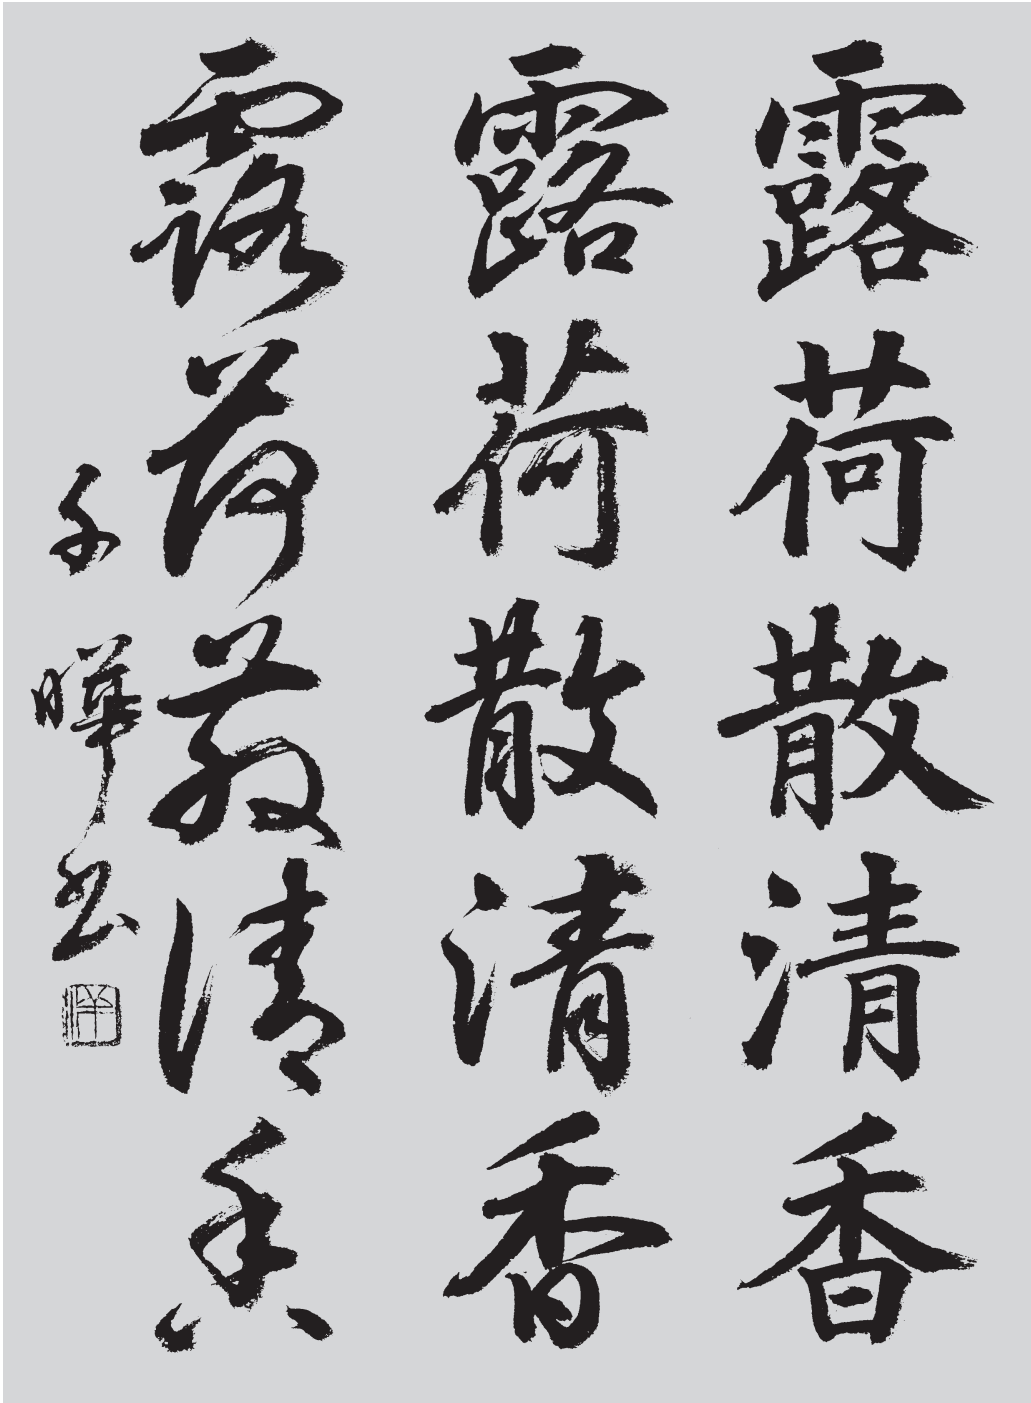 露荷散清香
露荷散清香
露荷散清香
子暉书